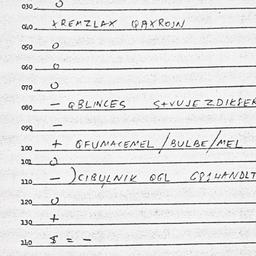 030 O
040 XREMZLAX QAXROJN
050 O
060 O
070 O
080 - QBLINCES S+VUJE ZDIKSER
090 -
100 + QFUMACEMEL/BULBE/MEL
O
110 - )CIBULNIK QGL
120 O
130 +
110 $ = -